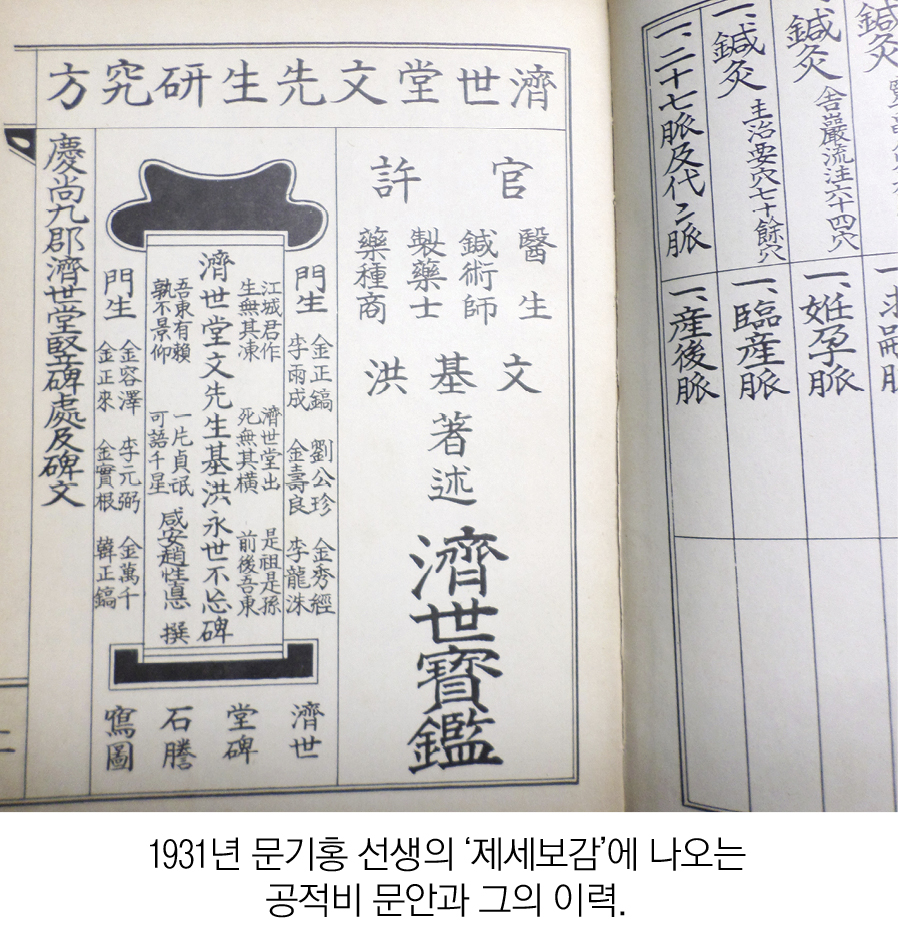 鍼灸
一、鍼灸 舍巖流注六十四穴
一、鍼灸 主治要穴七十餘穴
一、二十七脈及代〻脈
一、妊孕脈
一、臨産脈
一、産後脈
濟世堂文先生研究方
官許
醫生
鍼術師
製藥士
藥種商
文基洪
著述
濟世寶鑑
門生
金正鎬 劉公珍 金秀經
李雨成 金壽良 李龍洙
江城君作 濟世堂出 是祖是孫
生無其凍 死無其橫 前後吾東
濟世堂文先生基洪永世不忘碑
吾東有賴 一片貞珉
孰不景仰 可語千星
咸安趙性悳 撰
門生
金容澤 李元弼 金萬千
金正來 金實根 韓正鎬
濟世
堂碑
石謄
寫圖
慶尚九郡濟世堂竪碑處及碑文
二
1931년 문기홍 선생의 ‘제세보감’에 나오는
공적비 문안과 그의 이력.